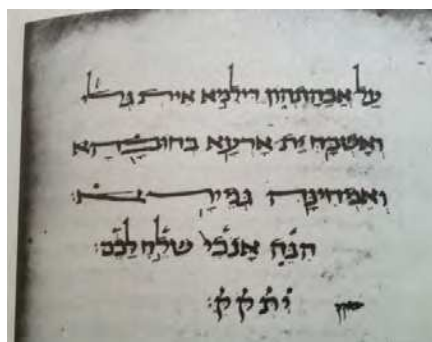 על אבהתהון דילמא אית גלי
ואשכח ית ארעא בחובהא
ואמחינה גמירא:
הנה אנכי שלח לכם:
סימן יתקק: